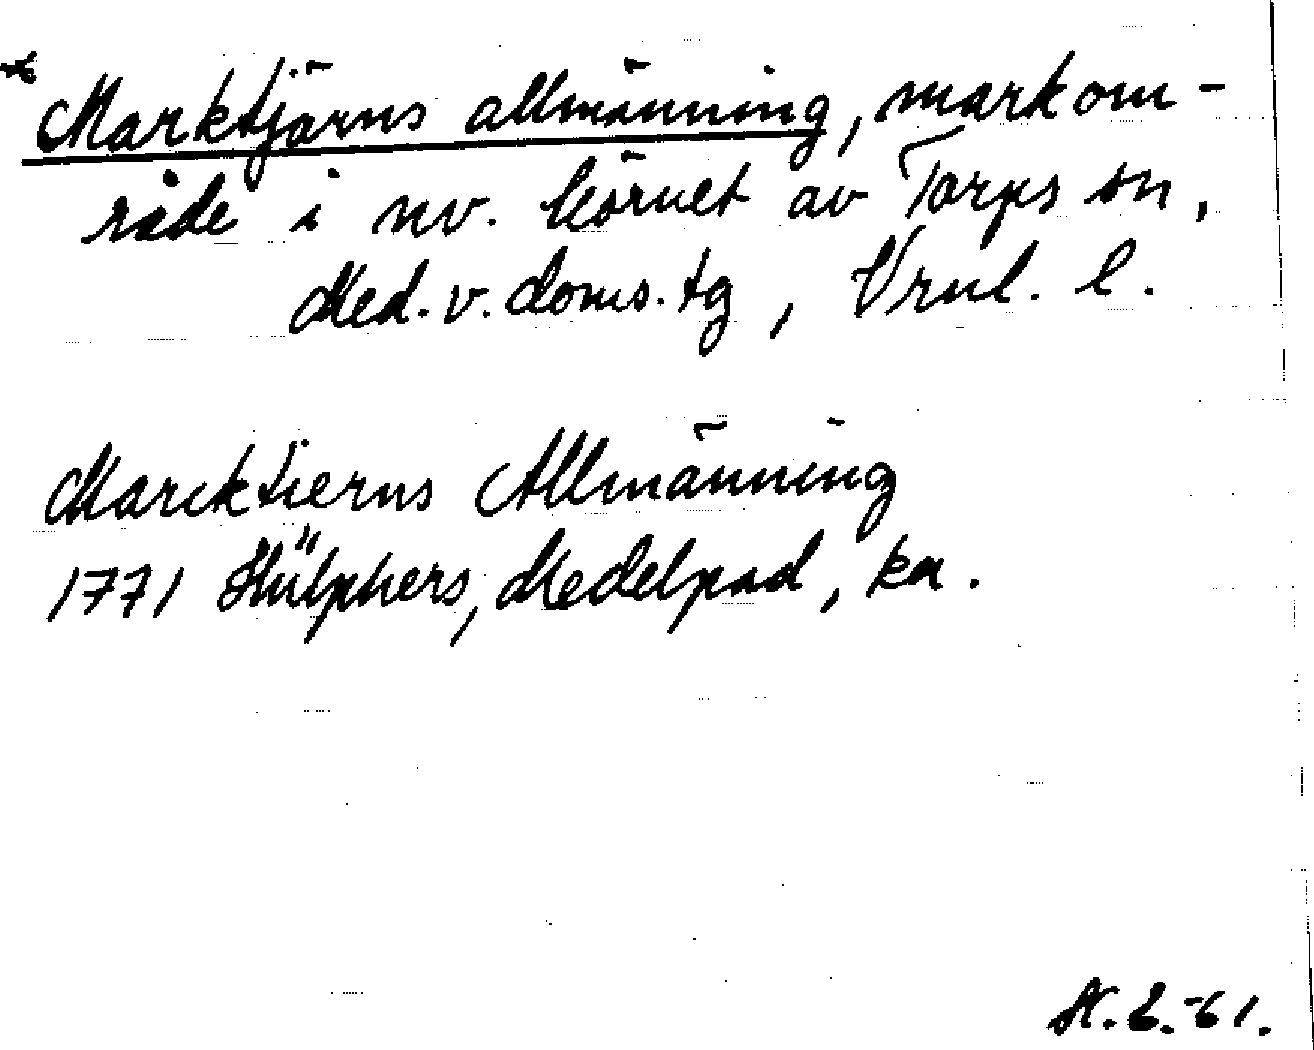 * Marktjärns allmänning, markom-
råde i nv. hörnet av Torps sn,
Med. v. doms. tg, Vrnl. l.
Marcktierns Allmänning
1771 Hülphers, Medelpad, ka.
N. E. -61.